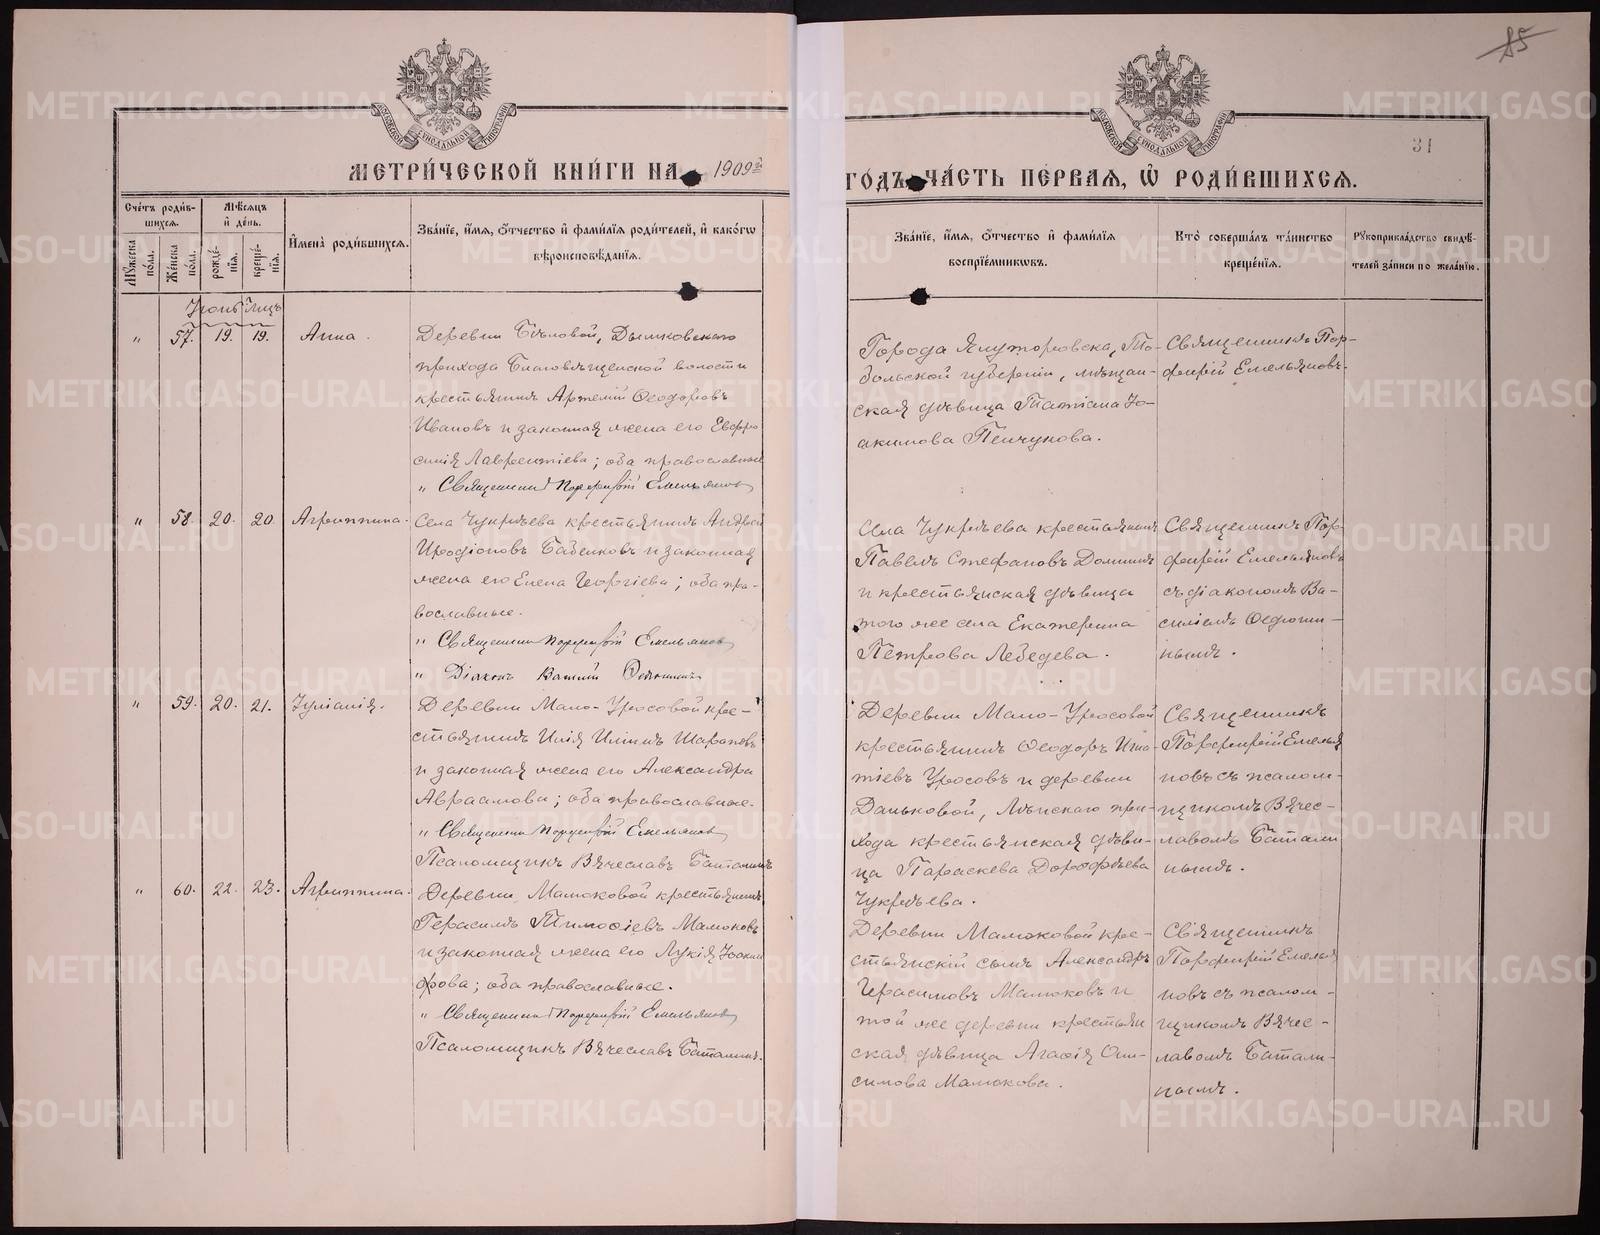 85
31
МЕТРИ́ЧЕСКОЙ КНИ́ГИ НА 1909й
ГОДЪ ЧА́СТЬ ПЕ́РВАЯ, Ѡ РОДИ́ВШИХСЯ.
Сче́тъ роди́вшихся.
Мѣ́сяцъ и де́нь.
Му́жеска по́ла.
Же́нска по́ла.
рожде́нїя.
креще́нїя.
Имена̀ роди́вшихся.
Зва́нїе, и́мя, о́тчество и фами́лїя роди́телей, и како́гѡ
вѣроисповѣ́данїя.
Зва́нїе, и́мя, о́тчество и фами́лїя
воспрїе́мникѡвъ.
Кто̀ соверша́лъ та́инство
креще́нїя.
Рукоприкла́дство свидѣ́-
телей за́писи по жела́нїю.
Іюнь мѣсяцъ
" 57. 19. 19. Анна.
Деревни Бѣловой, Дымковскаго
прихода Благовѣщенской волости
крестьянинъ Артемій Ѳеодоровъ
Ивановъ и законная жена его Евфро
синія Лаврентіева; оба православные
" Священникъ Порфирій Емельяновъ
Города Ялуторовска, То-
больской губерніи, мѣщан-
ская дѣвица Татіана Іо-
акимова Пенчукова.
Священникъ Пор-
фирій Емельяновъ.
" 58. 20. 20. Агриппина.
Села Чукрѣева крестьянинъ Андрей
Иродіоновъ Бабенковъ и законная
жена его Елена Георгіева; оба пра-
вославные.
" Священникъ Порфирій Емельяновъ
" Діаконъ Василій
Села Чукрѣева крестьянинъ
Павелъ Стефановъ Долининъ
и крестьянская дѣвица
того же села Екатерина
Петрова Лебедева.
Священникъ Пор-
фирій Емельяновъ
съ діакономъ Ва-
силіемъ
нымъ.
" 59. 20. 21. Іуліанія.
Деревни Мало-Уросовой кре-
стьянинъ Илія Ильинъ Шараповъ
и законная жена его Александра
Авраамова; оба православные.
" Священникъ Порфирій Емельяновъ
Псаломщикъ Вячеславъ Баталинъ
Деревни Мало-Уросовой
крестьянинъ Ѳеодоръ Игна-
тіевъ Уросовъ и деревни
Даньковой, Липскаго при-
хода крестьянская дѣви-
ца Параскева Дороѳѣева
Чукрѣева.
Священникъ
Порфирій Емелья
новъ съ псалом-
щикомъ Вячес-
лавомъ Батали
нымъ.
" 60. 22. 23. Агриппина.
Деревни Мамоковой крестьянинъ
Герасимъ Тимоѳіевъ Мамоковъ
и законная жена его Лукія Іоаки
фова; оба православные.
" Священникъ Порфирій Емельяновъ
Псаломщикъ Вячеславъ Баталинъ.
Деревни Мамоковой кре-
стьянскій сынъ Александръ
Герасимовъ Мамоковъ и
той же деревни крестьян
ская дѣвица Агаѳія Они-
симова Мамокова.
Священникъ
Порфирій Емелья
новъ съ псалом-
щикомъ Вячес-
лавомъ Батали-
нымъ.
METRIKI.GASO-URAL.RU